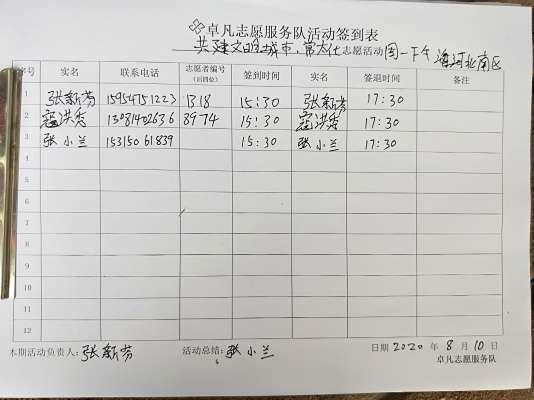 卓凡志愿服务队活动签到表
共建文明城市,常大仕志愿活动 周一下午 海河北南区
序号 实名 联系电话 志愿者编号(后四位) 签到时间 实名 签退时间 备注
1 张新芳 15954751223 1318 15:30 张新芳 17:30
2 寇洪秀 13081402636 8974 15:30 寇洪秀 17:30
3 张小兰 15315061839 15:30 张小兰 17:30
4
5
6
7
8
9
10
11
12
本期活动负责人:张新芳 活动总结:张小兰 日期 2020 年 8 月 10 日
卓凡志愿服务队